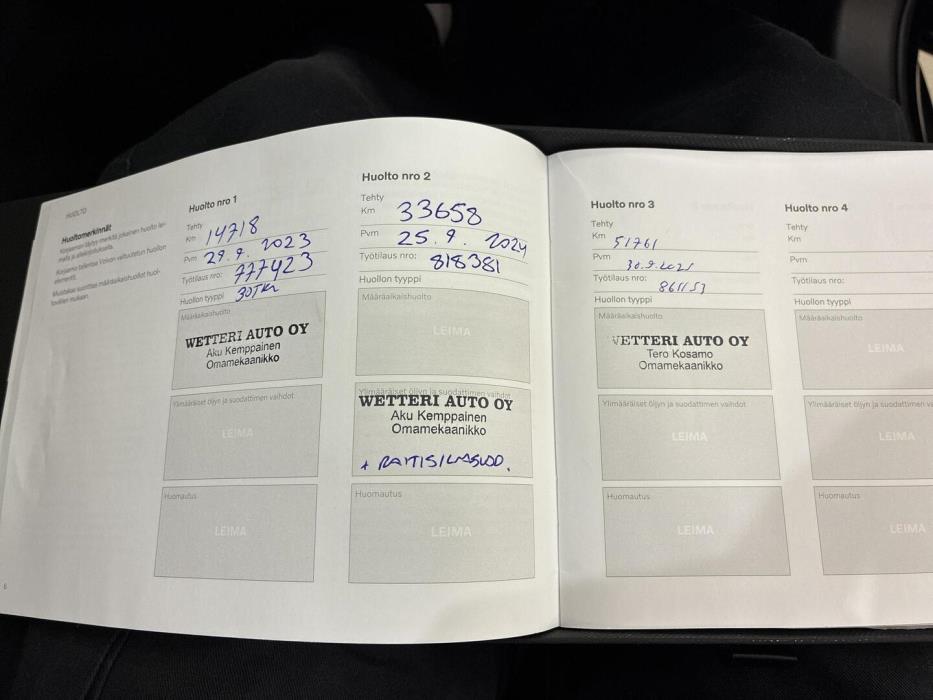 HUOLTO
Huoltomerkinnät
Korjaamon täytyy merkitä jokainen huolto lei-
malla ja allekirjoituksella.
Korjaamo tallentaa Volvon valtuutetun huollon
elementit.
Muistakaa suorittaa määräaikaishuollot huol-
tovälien mukaan.
6
Huolto nro 1
Tehty
Km 14718
Pvm 29.9.2023
Työtilaus nro: 777423
Huollon tyyppi 30TKM
Määräaikaishuolto
WETTERI AUTO OY
Aku Kemppainen
Omamekaanikko
Ylimääräiset öljyn ja suodattimen vaihdot
LEIMA
Huomautus
LEIMA
Huolto nro 2
Tehty
Km 33658
Pvm 25.9.2024
Työtilaus nro: 818381
Huollon tyyppi
Määräaikaishuolto
LEIMA
Ylimääräiset öljyn ja suodattimen vaihdot
WETTERI AUTO OY
Aku Kemppainen
Omamekaanikko
+ RAITISILMASUOD.
Huomautus
LEIMA
Huolto nro 3
Tehty
Km 51761
Pvm
30.9.2025
Työtilaus nro:
861153
Huollon tyyppi
Määräaikaishuolto
WETTERI AUTO OY
Tero Kosamo
Omamekaanikko
Ylimääräiset öljyn ja suodattimen vaihdot
LEIMA
Huomautus
LEIMA
Huolto nro 4
Tehty
Km
Pvm
Työtilaus nro:
Huollon tyyppi
Määräaikaishuolto
LEIMA
Ylimääräiset öljyn ja suodattimen va
LEIMA
Huomautus
LEIMA